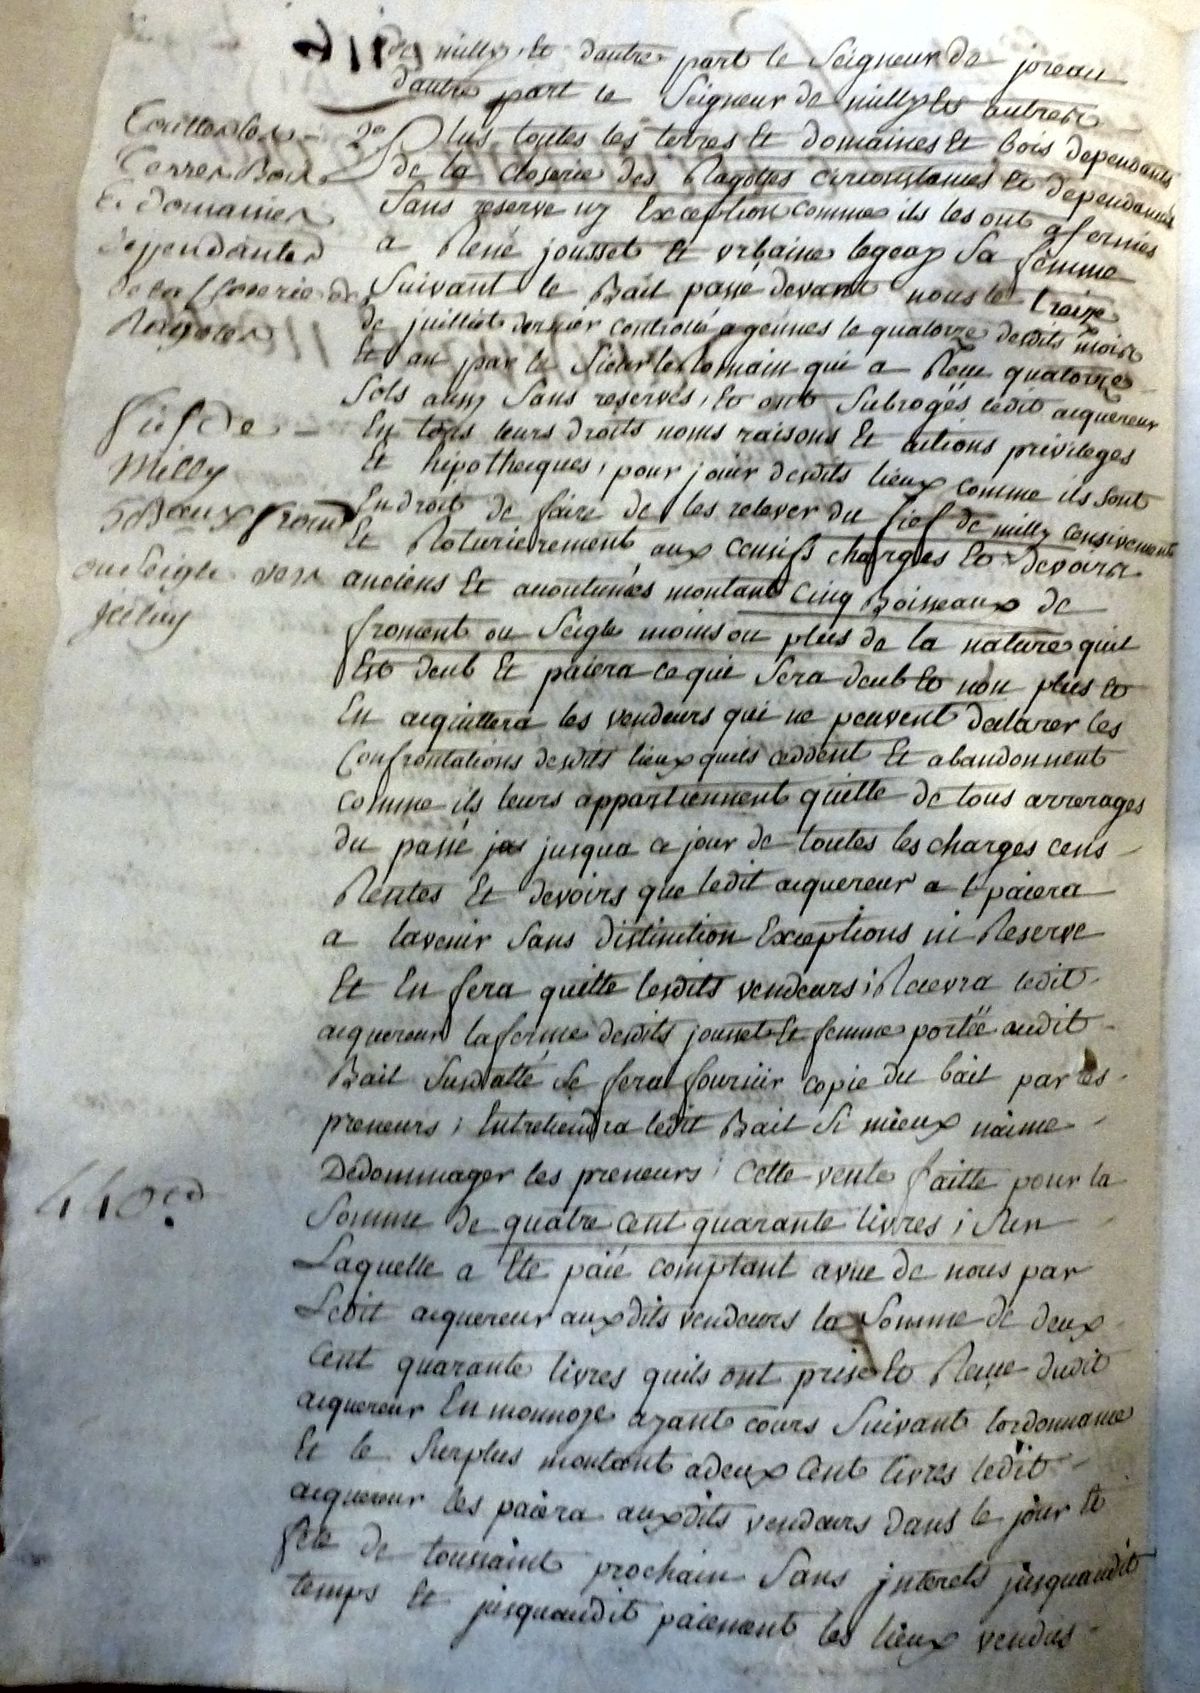 de milly, Et dautre part le Seigneur de joreau
dautre part le Seigneur de milly Et autres
Touttes les
Terres Bois
Et domaines
dependantes
de la Closerie des
Ragotes
2o Plus toutes les terres Et domaines Et bois dependants
de la closerie des Ragottes circonstances Et dependances
Sans reserve ny Exception comme ils les ont afermés
a René jousset Et urbaine legeay Sa femme
Suivant le Bail passé devant nous le treize
de juilliet dernier controllé a gennes le quatorze desdits mois
Et an par le Sieur le Romain qui a Reçu quatorze
Sols aussy Sans reserves, Et ont Subrogés ledit acquereur
En tous leurs droits noms raisons Et actions privileges
Et hipotheques, pour jouir desdits lieux comme ils Sont
fief de
Milly
5 Bxeaux froment
ou Seigle vers
jceluy
En droit de faire de les relever du fief de milly censivement
Et Roturierement aux censifs charges Et devoirs
anciens Et accoutumés montant cinq Boisseaux de
froment ou Seigle moins ou plus de la nature quil
Est deub Et paiera ce qui Sera deub Et non plus Et
En acquittera les vendeurs qui ne peuvent declarer les
Confrontations desdits lieux quils ceddent Et abandonnent
comme ils leurs appartiennent quitte de tous arrerages
du passé jus jusqua ce jour de toutes les charges cens
Rentes Et devoirs que ledit acquereur a paiera
a lavenir Sans distinction Exceptions ni Reserve
Et En fera quitte lesdits vendeurs; Recevra ledit
acquereur la ferme desdits jousset Et femme portée audit
Bail Susdatté Se fera fournir copie du bail par les
preneurs; Entretiendra ledit Bail Si mieux naime
Dedommager les preneurs; Cette vente faitte pour la
440#
Somme de quatre cent quarante livres; Sur
Laquelle a Ete paié comptant a vue de nous par
Ledit acquereur auxdits vendeurs la Somme de deux
Cent quarante livres quils ont prise Et Reçue dudit
acquereur En monnoye ayant cours Suivant lordonnance
Et le Surplus montant a deux Cent livres ledit
acquereur les paiera auxdits vendeurs dans le jour Et
fete de toussaint prochain Sans jnterets jusquaudit
temps Et jusquaudit paiement les lieux vendus